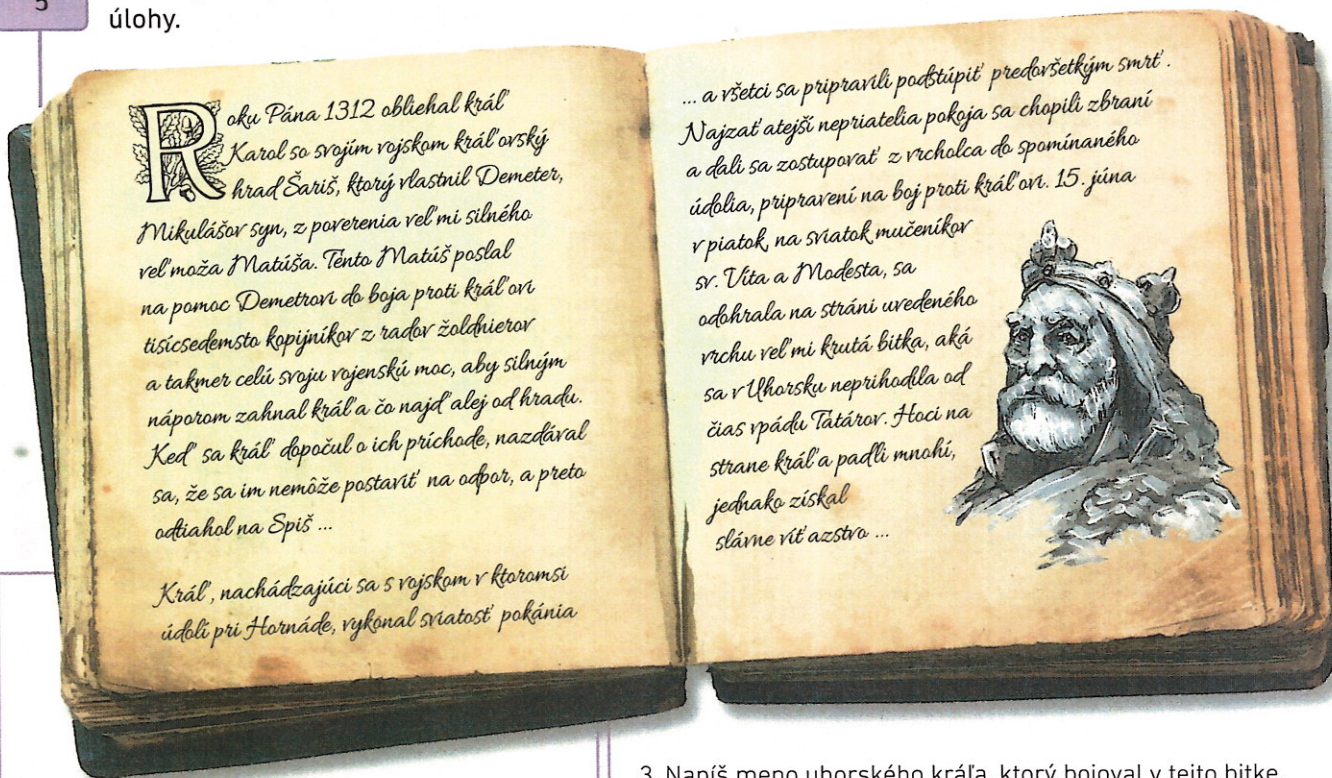 5
úlohy.
Roku Pána 1312 obliehal kráľ
Karol so svojím vojskom kráľovský
hrad Šariš, ktorý vlastnil Demeter,
Mikulášov syn, z poverenia veľmi silného
veľmoža Matúša. Tento Matúš poslal
na pomoc Demetrovi do boja proti kráľovi
tisícsedemsto kopijníkov z radov žoldnierov
a takmer celú svoju vojenskú moc, aby silným
náporom zahnal kráľa čo najďalej od hradu.
Keď sa kráľ dopočul o ich príchode, nazdával
sa, že sa im nemôže postaviť na odpor, a preto
odtiahol na Spiš ...
Kráľ, nachádzajúci sa s vojskom v ktoromsi
údolí pri Hornáde, vykonal sviatosť pokánia
... a všetci sa pripravili podstúpiť predovšetkým smrť.
Najzaťatejší nepriatelia pokoja sa chopili zbraní
a dali sa zostupovať z vrcholca do spomínaného
údolia, pripravení na boj proti kráľovi. 15. júna
v piatok, na sviatok mučeníkov
sv. Víta a Modesta, sa
odohrala na stráni uvedeného
vrchu veľmi krutá bitka, aká
sa v Uhorsku neprihodila od
čias vpádu Tatárov. Hoci na
strane kráľa padli mnohí,
jednako získal
slávne víťazstvo ...
3. Napíš meno uhorského kráľa, ktorý bojoval v tejto bitke